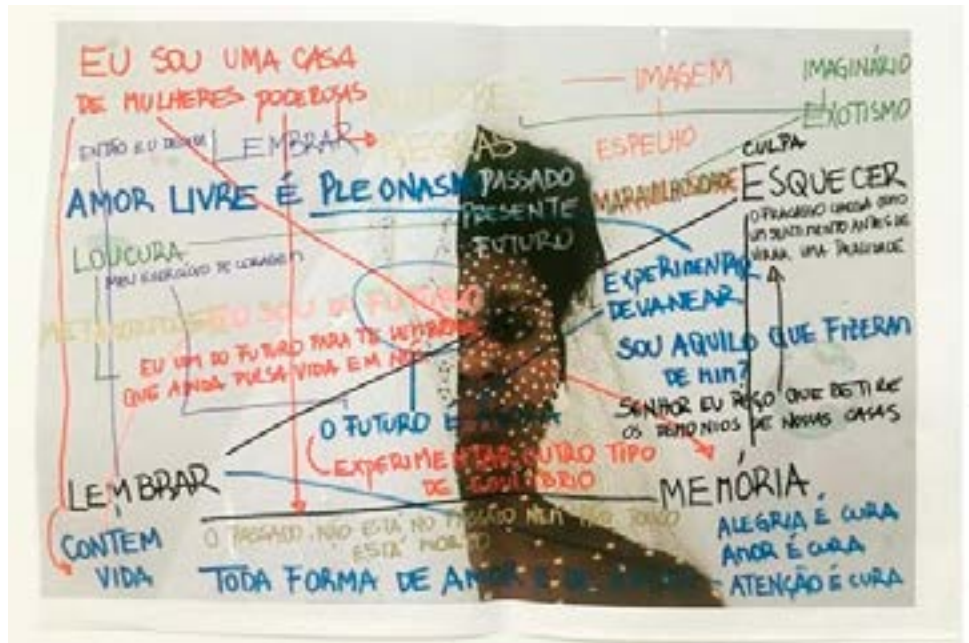 EU SOU UMA CASA
DE MULHERES PODEROSAS
IMAGEM
IMAGINÁRIO
EXOTISMO
ESPELHO
CULPA
ENTÃO EU
LEMBRAR
AMOR LIVRE É PLEONASM
PASSADO
PRESENTE
FUTURO
MARAVILHOSIDADE
ESQUECER
O FRACASSO CHEGA COMO
UM SENTIMENTO ANTES DE
VIRAR UMA REALIDADE
LOUCURA
MEU EXERCÍCIO DE CORAGEM
EXPERIMENTAR
DEVANEAR
EU SOU DO FUTURO
EU VIM DO FUTURO PARA TE LEMBRAR
QUE AINDA PULSA VIDA EM NÓS
SOU AQUILO QUE FIZERAM
DE MIM?
SENHOR EU PEÇO QUE RETIRE
OS DEMÔNIOS DE NOSSAS CASAS
O FUTURO É
EXPERIMENTAR OUTRO TIPO
DE EQUILÍBRIO
LEMBRAR
MEMÓRIA
CONTEM
VIDA
O PASSADO NÃO ESTÁ NO PASSADO NEM TÃO POUCO
ESTÁ MORTO
ALEGRIA É CURA
AMOR É CURA
ATENÇÃO É CURA
TODA FORMA DE AMOR É